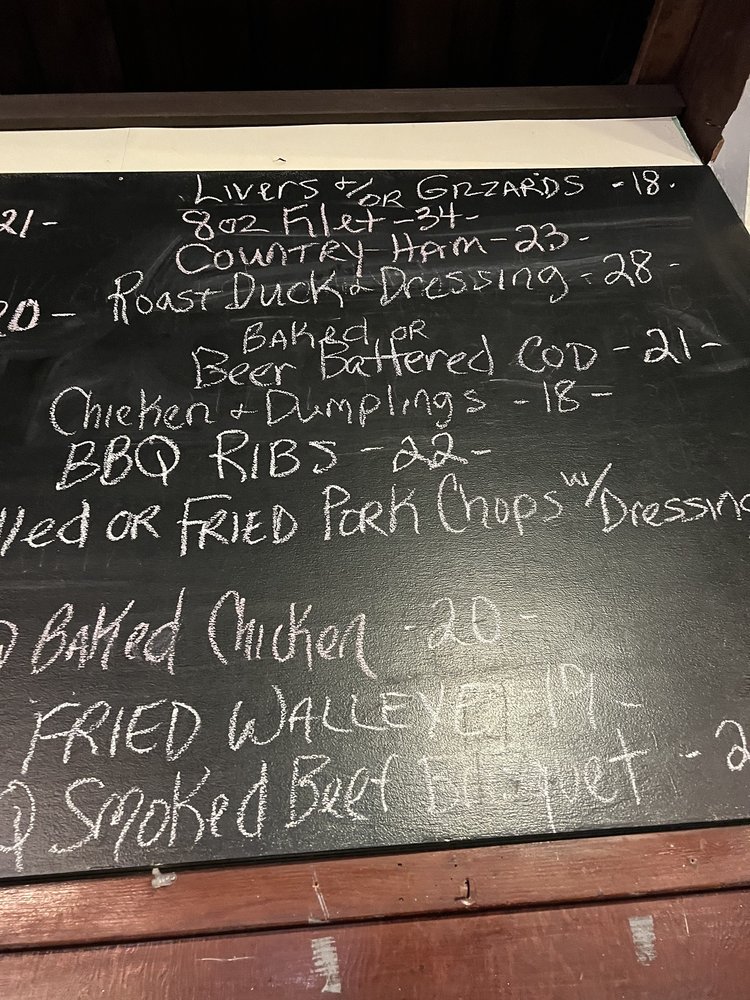 Livers &/OR GIZZARDS -18.
21-
8oz Filet -34-
COUNTRY HAM -23-
Roast Duck & Dressing -28-
20-
BAKed OR
Beer Battered COD -21-
Chicken & Dumplings -18-
BBQ RIBS -22-
lled OR FRIED PORK Chops w/ Dressing
Q BAKed Chicken -20-
FRIED WALLEYE -19-
Q Smoked Beef -2